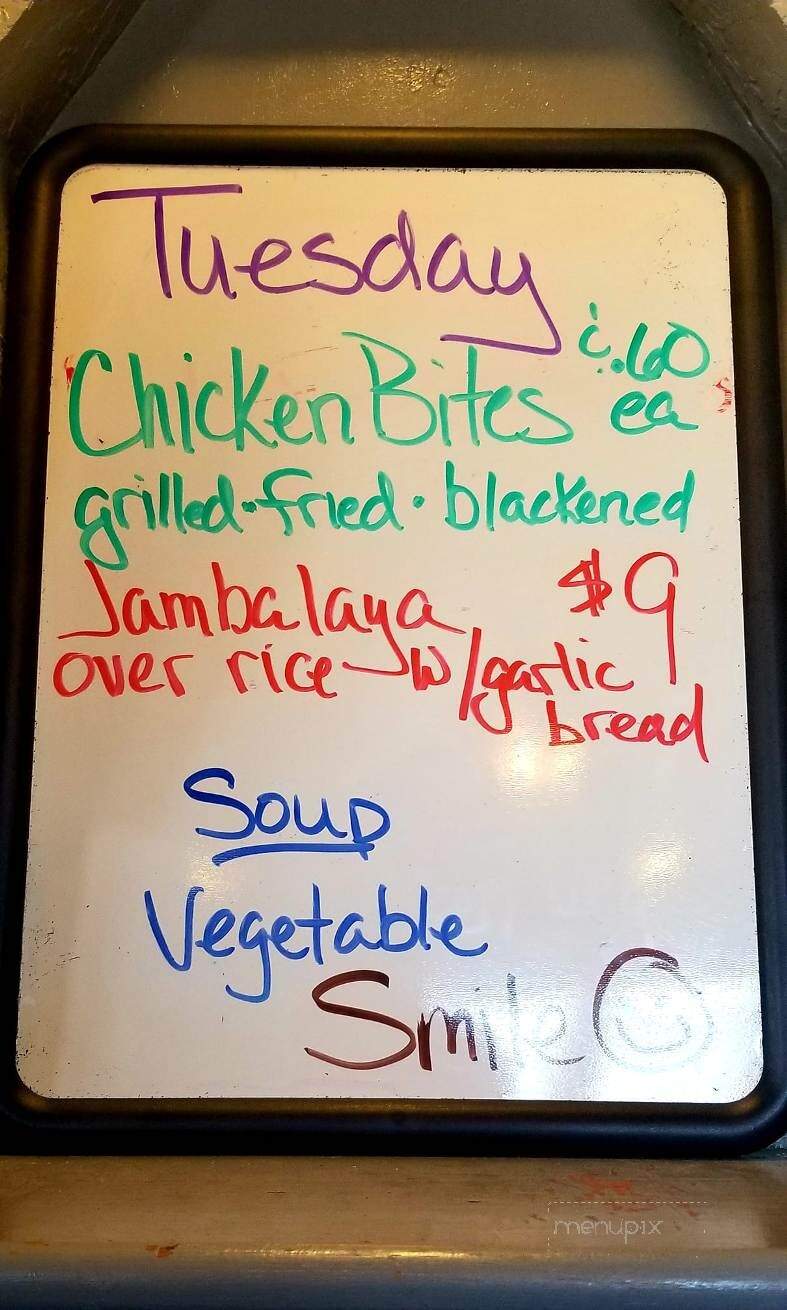 Tuesday
¢.60
Chicken Bites ea
grilled·fried·blackened
Jambalaya $9
over rice w/garlic
bread
Soup
Vegetable
Smile
menupix